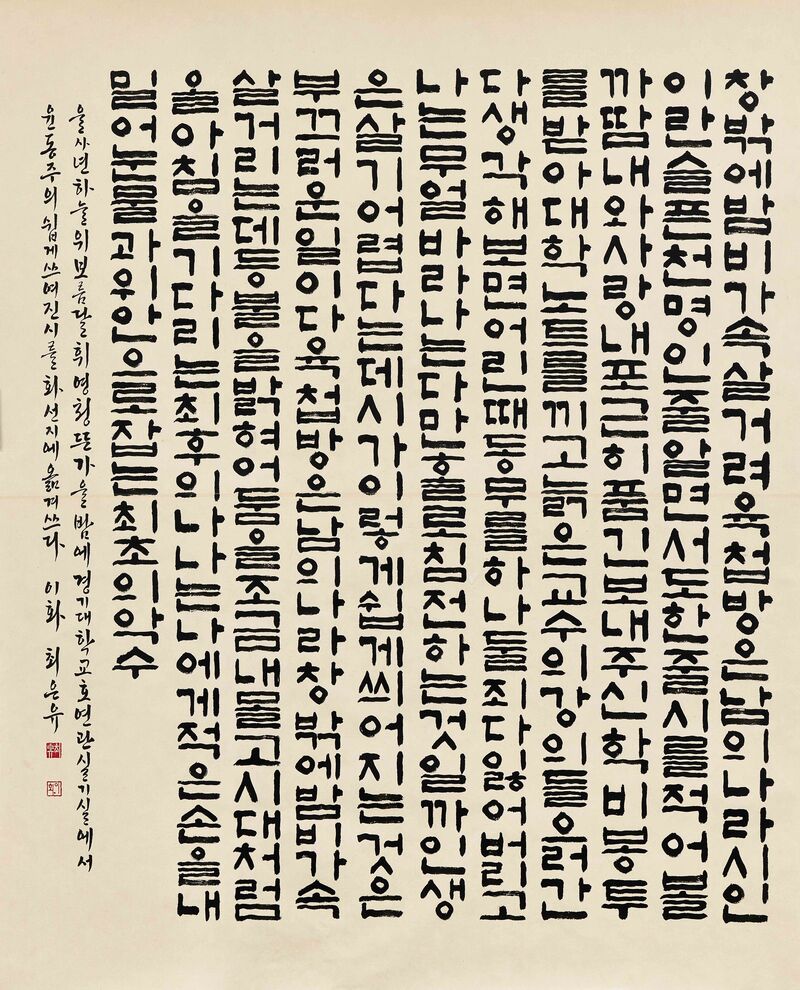 창밖에밤비가속살거려육첩방은남의나라시인
이란슬픈천명인줄알면서도한줄시를적어볼
까땀내와사랑내포근히품긴보내주신학비봉투
를받아대학노트를끼고늙은교수의강의들으러간
다생각해보면어린때동무를하나둘죄다잃어버리고
나는무얼바라나는다만홀로침전하는것일까인생
은살기어렵다는데시가이렇게쉽게씌어지는것은
부끄러운일이다육첩방은남의나라창밖에밤비가속
살거리는데등불을밝혀어둠을조금내몰고시대처럼
올아침을기다리는최후의나나는나에게적은손을내
밀어눈물과위안으로잡는최초의악수
을사년하늘위보름달휘영청뜬가을밤에경기대학교호연관실기실에서
윤동주의쉽게쓰여진시를화선지에옮겨쓰다 이화 최은유